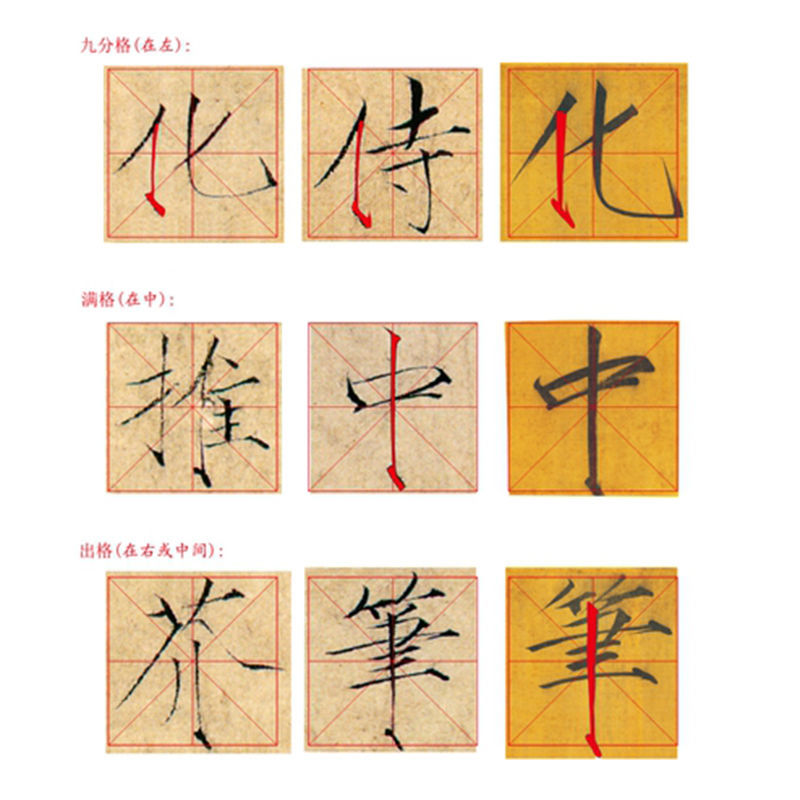 九分格(在左):
化 侍 化
满格(在中):
推 中 中
出格(在右或中间):
芥 筆 筆